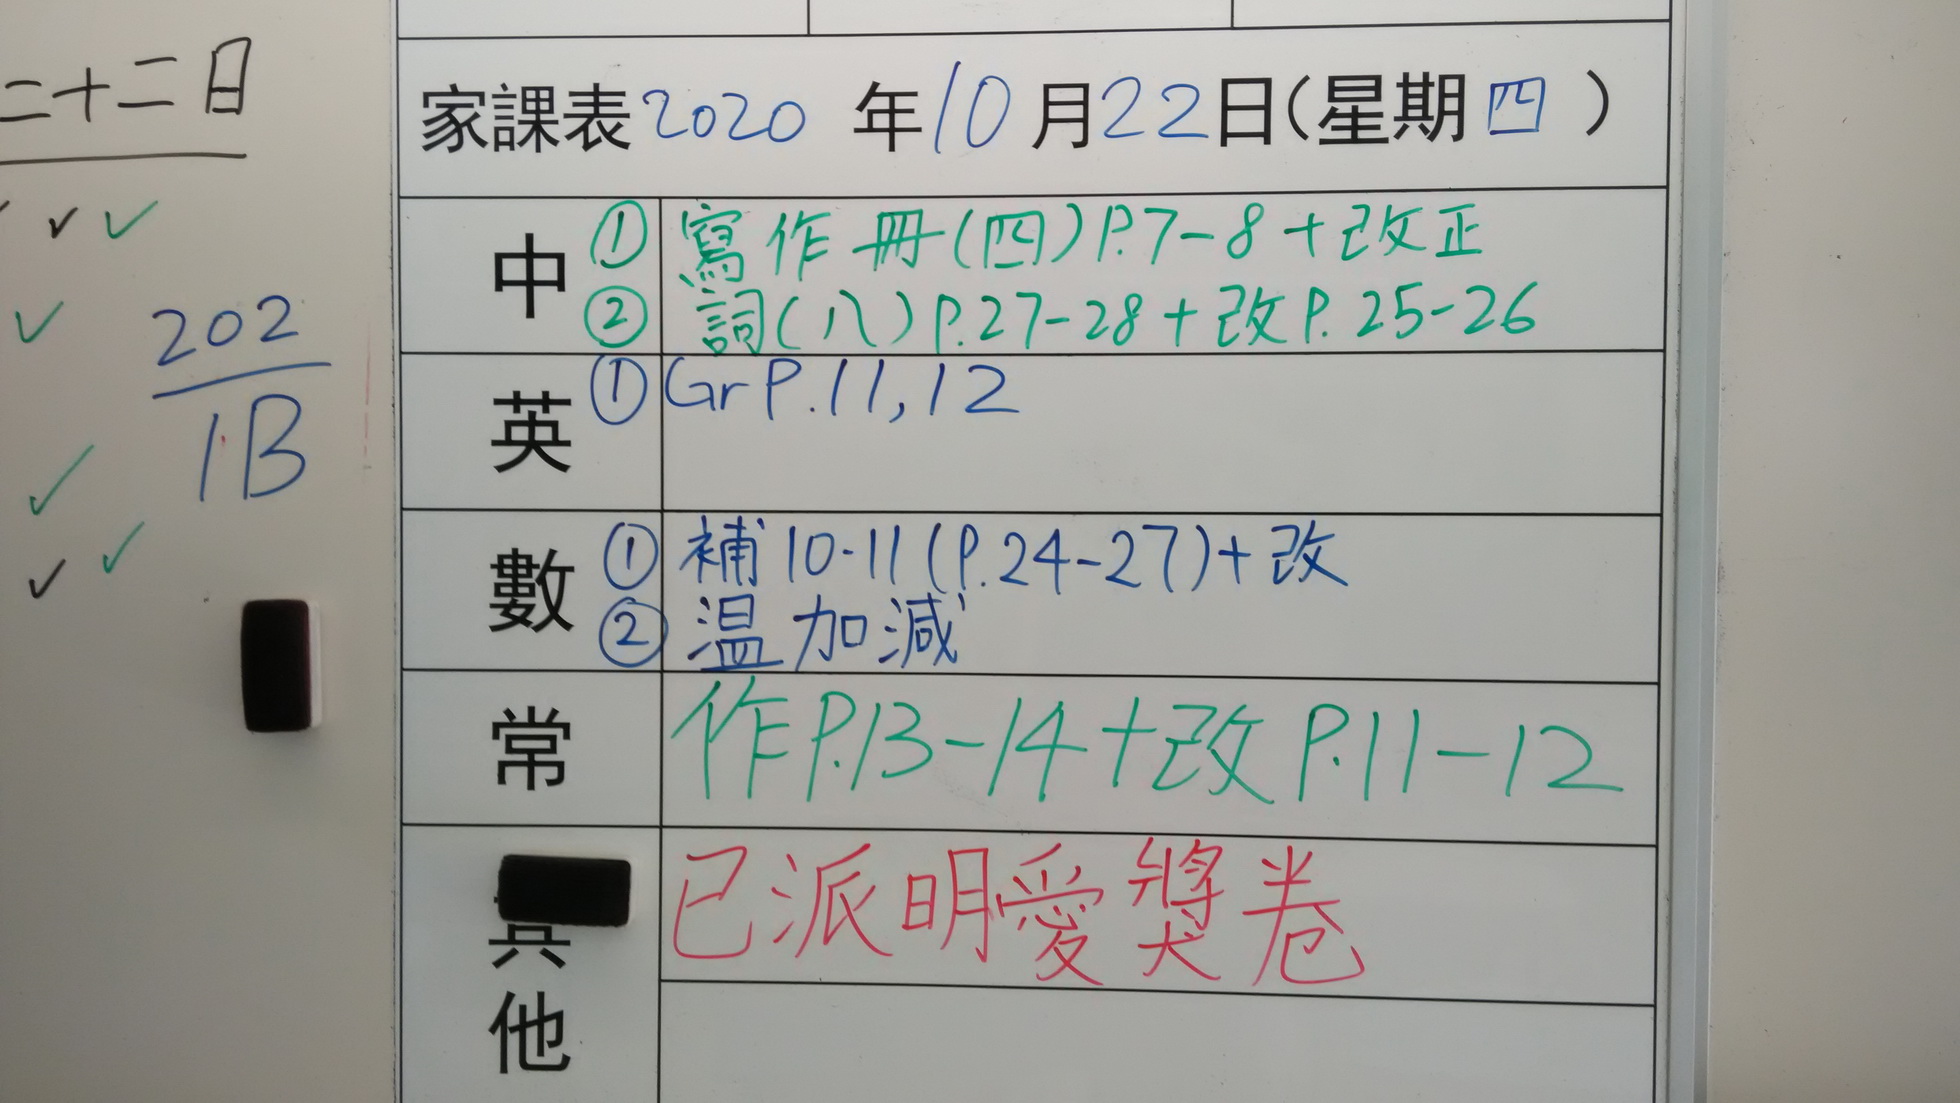 二十二日
202
1B
家課表2020年10月22日(星期四)
中
① 寫作冊(四)P.7-8+改正
② 詞(八)P.27-28+改P.25-26
英
① GrP.11,12
數
① 補10-11(P.24-27)+改
② 温加減
常
作P.13-14+改P.11-12
其他
已派明愛獎卷